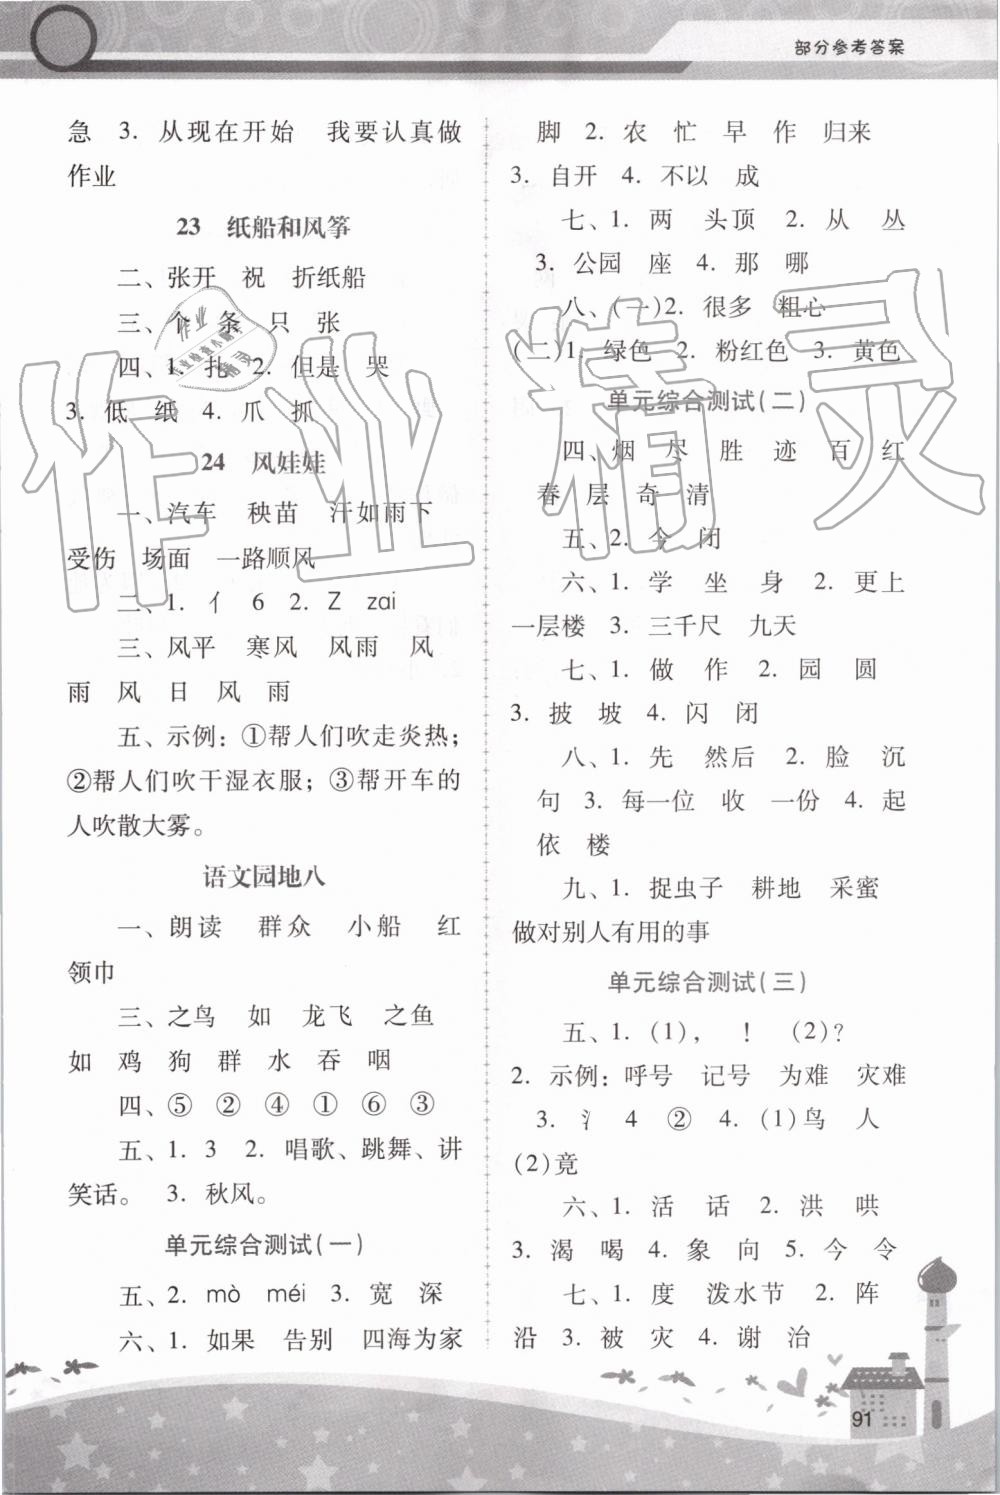 部分参考答案
急 3. 从现在开始 我要认真做
作业
23 纸船和风筝
二、张开 祝 折纸船
三、个 条 只 张
四、1. 扎 2. 但是 哭
3. 低 纸 4. 爪 抓
24 风娃娃
一、汽车 秧苗 汗如雨下
受伤 场面 一路顺风
二、1. 亻 6 2. Z zai
三、风平 寒风 风雨 风
雨 风 日 风 雨
五、示例：①帮人们吹走炎热；
②帮人们吹干湿衣服；③帮开车的
人吹散大雾。
语文园地八
一、朗读 群众 小船 红
领巾
三、之鸟 如 龙飞 之鱼
如 鸡 狗 群 水 吞 咽
四、⑤ ② ④ ① ⑥ ③
五、1. 3 2. 唱歌、跳舞、讲
笑话。 3. 秋风。
单元综合测试(一)
五、2. mò méi 3. 宽 深
六、1. 如果 告别 四海为家
脚 2. 农 忙 早 作 归来
3. 自开 4. 不以 成
七、1. 两 头顶 2. 从 丛
3. 公园 座 4. 那 哪
八、(一)2. 很多 粗心
(二)1. 绿色 2. 粉红色 3. 黄色
单元综合测试(二)
四、烟 尽 胜 迹 百 红
春 层 奇 清
五、2. 今 闭
六、1. 学 坐 身 2. 更上
一层楼 3. 三千尺 九天
七、1. 做 作 2. 园 圆
3. 披 坡 4. 闪 闭
八、1. 先 然后 2. 脸 沉
句 3. 每一位 收 一份 4. 起
依 楼
九、1. 捉虫子 耕地 采蜜
做对别人有用的事
单元综合测试(三)
五、1. (1)， ！ (2)？
2. 示例：呼号 记号 为难 灾难
3. 氵 4 ② 4. (1)鸟 人
(2)竟
六、1. 活 话 2. 洪 哄
3. 渴 喝 4. 象 向 5. 今 令
七、1. 度 泼水节 2. 阵
沿 3. 被 灾 4. 谢 治
91
作业精灵